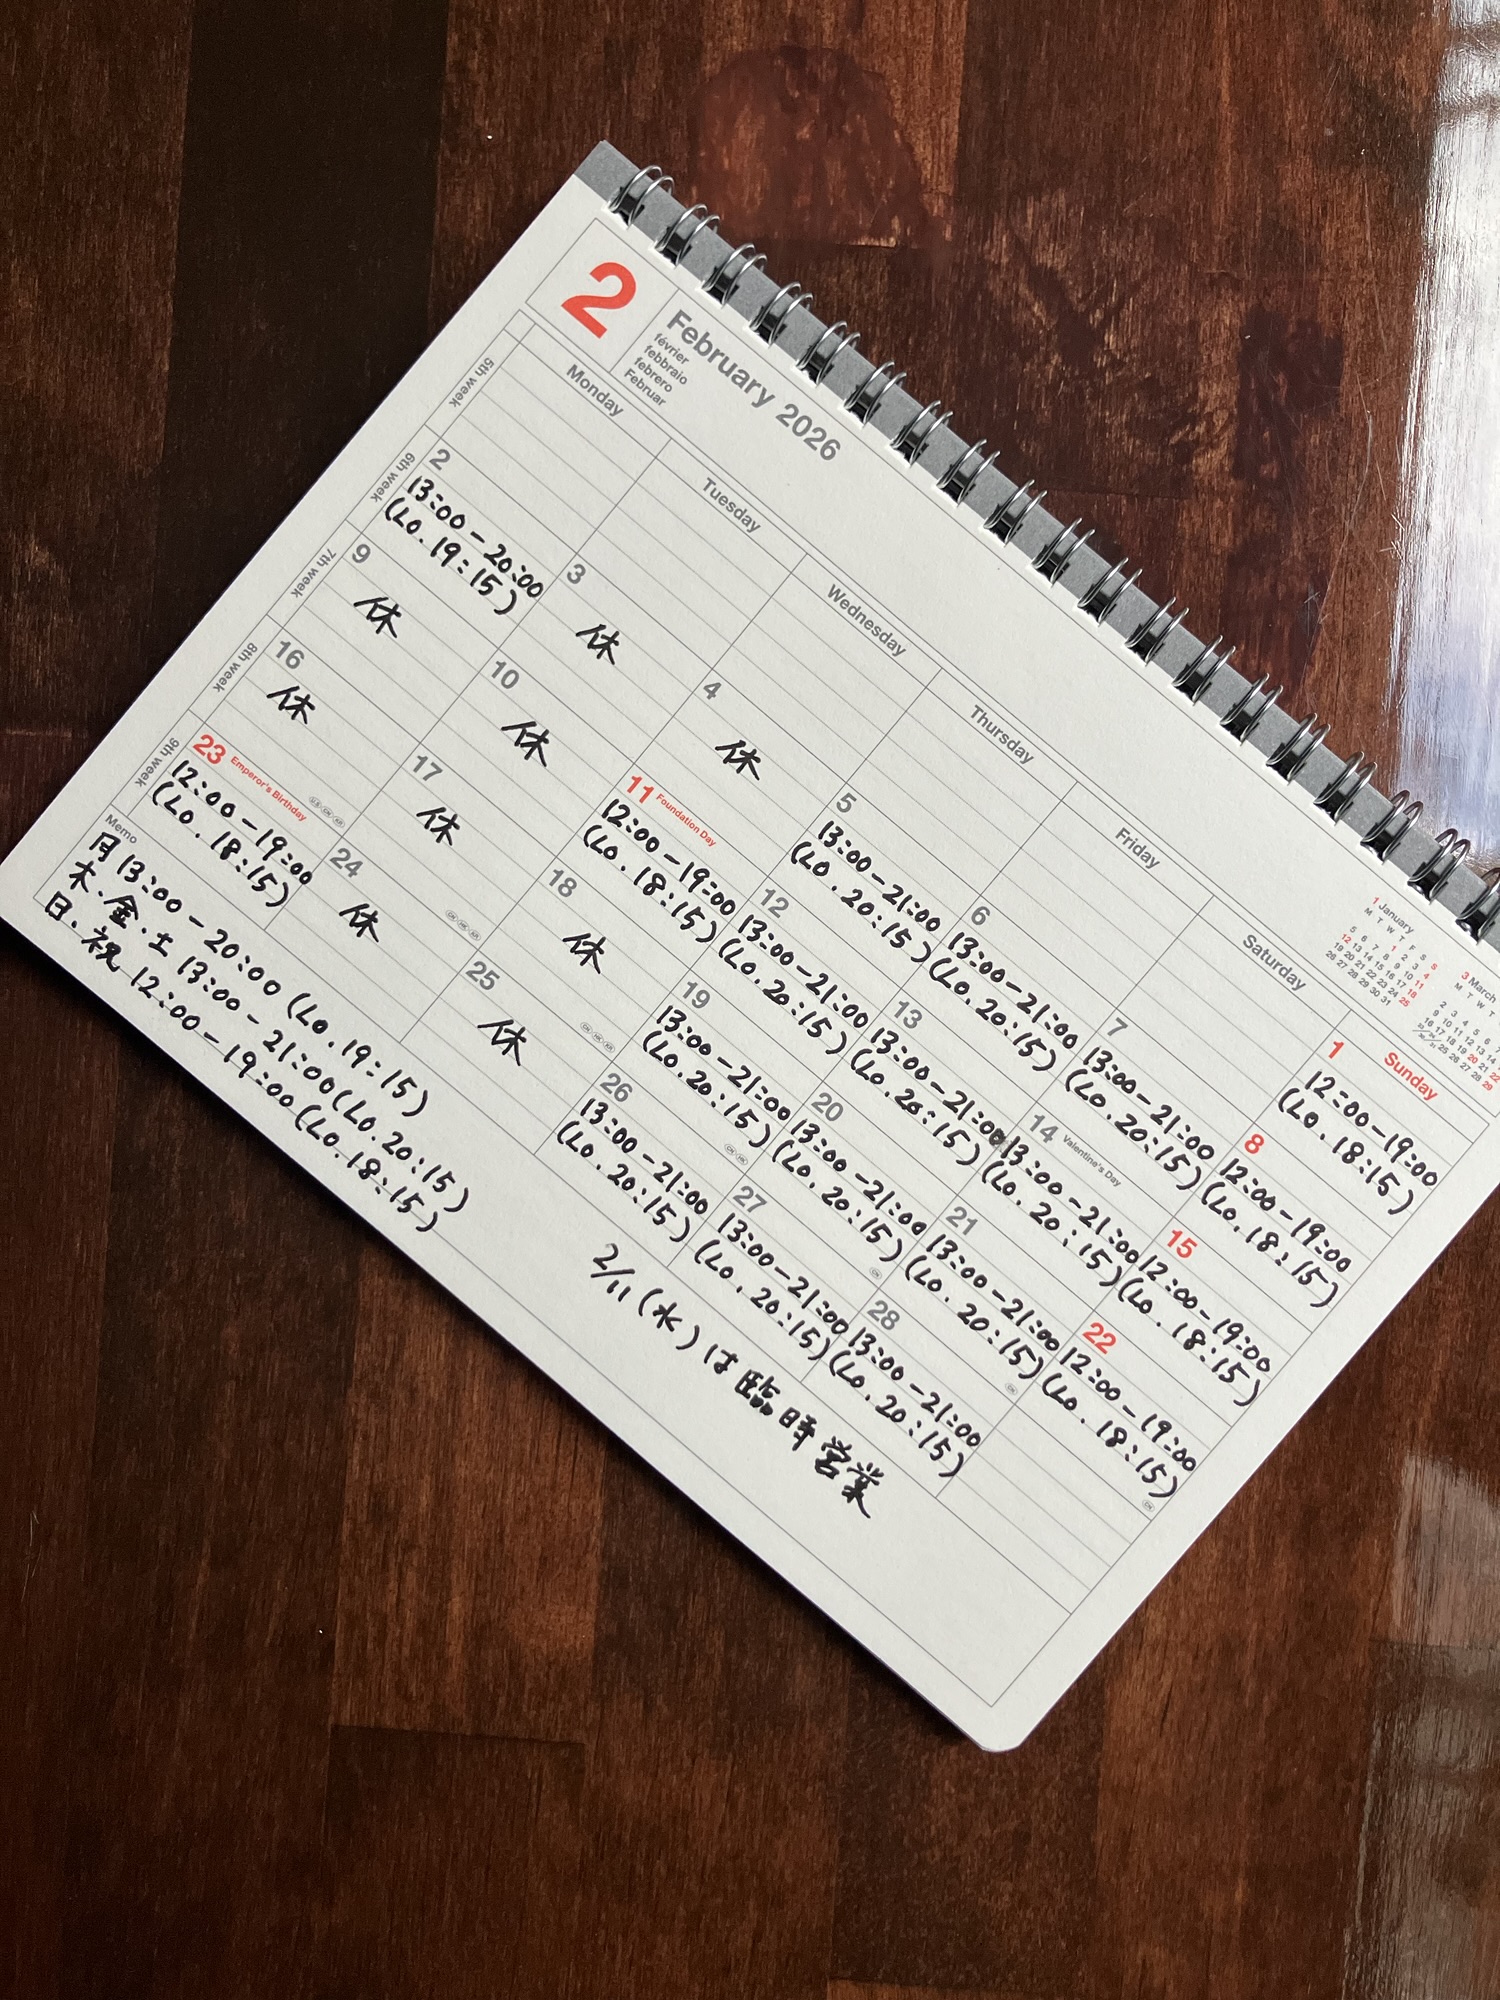 2
February 2026
février
febbraio
febrero
Februar
1 January
M T W T F S S
1 2 3 4
5 6 7 8 9 10 11
12 13 14 15 16 17 18
19 20 21 22 23 24 25
26 27 28 29 30 31
3 March
M T W T
2 3 4 5 6 7
9 10 11 12 13 14
16 17 18 19 20 21 22
25 26 27 28 29
Monday Tuesday Wednesday Thursday Friday Saturday Sunday
5th week
1
12:00-19:00
(L.O. 18:15)
6th week
2
13:00-20:00
(L.O. 19:15)
3
休
4
休
5
13:00-21:00
(L.O. 20:15)
6
13:00-21:00
(L.O. 20:15)
7
13:00-21:00
(L.O. 20:15)
8
12:00-19:00
(L.O. 18:15)
7th week
9
休
10
休
11 Foundation Day
12:00-19:00
(L.O. 18:15)
12
13:00-21:00
(L.O. 20:15)
13
13:00-21:00
(L.O. 20:15)
14 Valentine's Day
13:00-21:00
(L.O. 20:15)
15
12:00-19:00
(L.O. 18:15)
8th week
16
休
17
休
18
休
19
13:00-21:00
(L.O. 20:15)
20
13:00-21:00
(L.O. 20:15)
21
13:00-21:00
(L.O. 20:15)
22
12:00-19:00
(L.O. 18:15)
9th week
23 Emperor's Birthday
12:00-19:00
(L.O. 18:15)
24
休
25
休
26
13:00-21:00
(L.O. 20:15)
27
13:00-21:00
(L.O. 20:15)
28
13:00-21:00
(L.O. 20:15)
Memo
月 13:00-20:00 (L.O. 19:15)
木.金.土 13:00-21:00 (L.O. 20:15)
日.祝 12:00-19:00 (L.O. 18:15)
2/11(水)は臨時営業